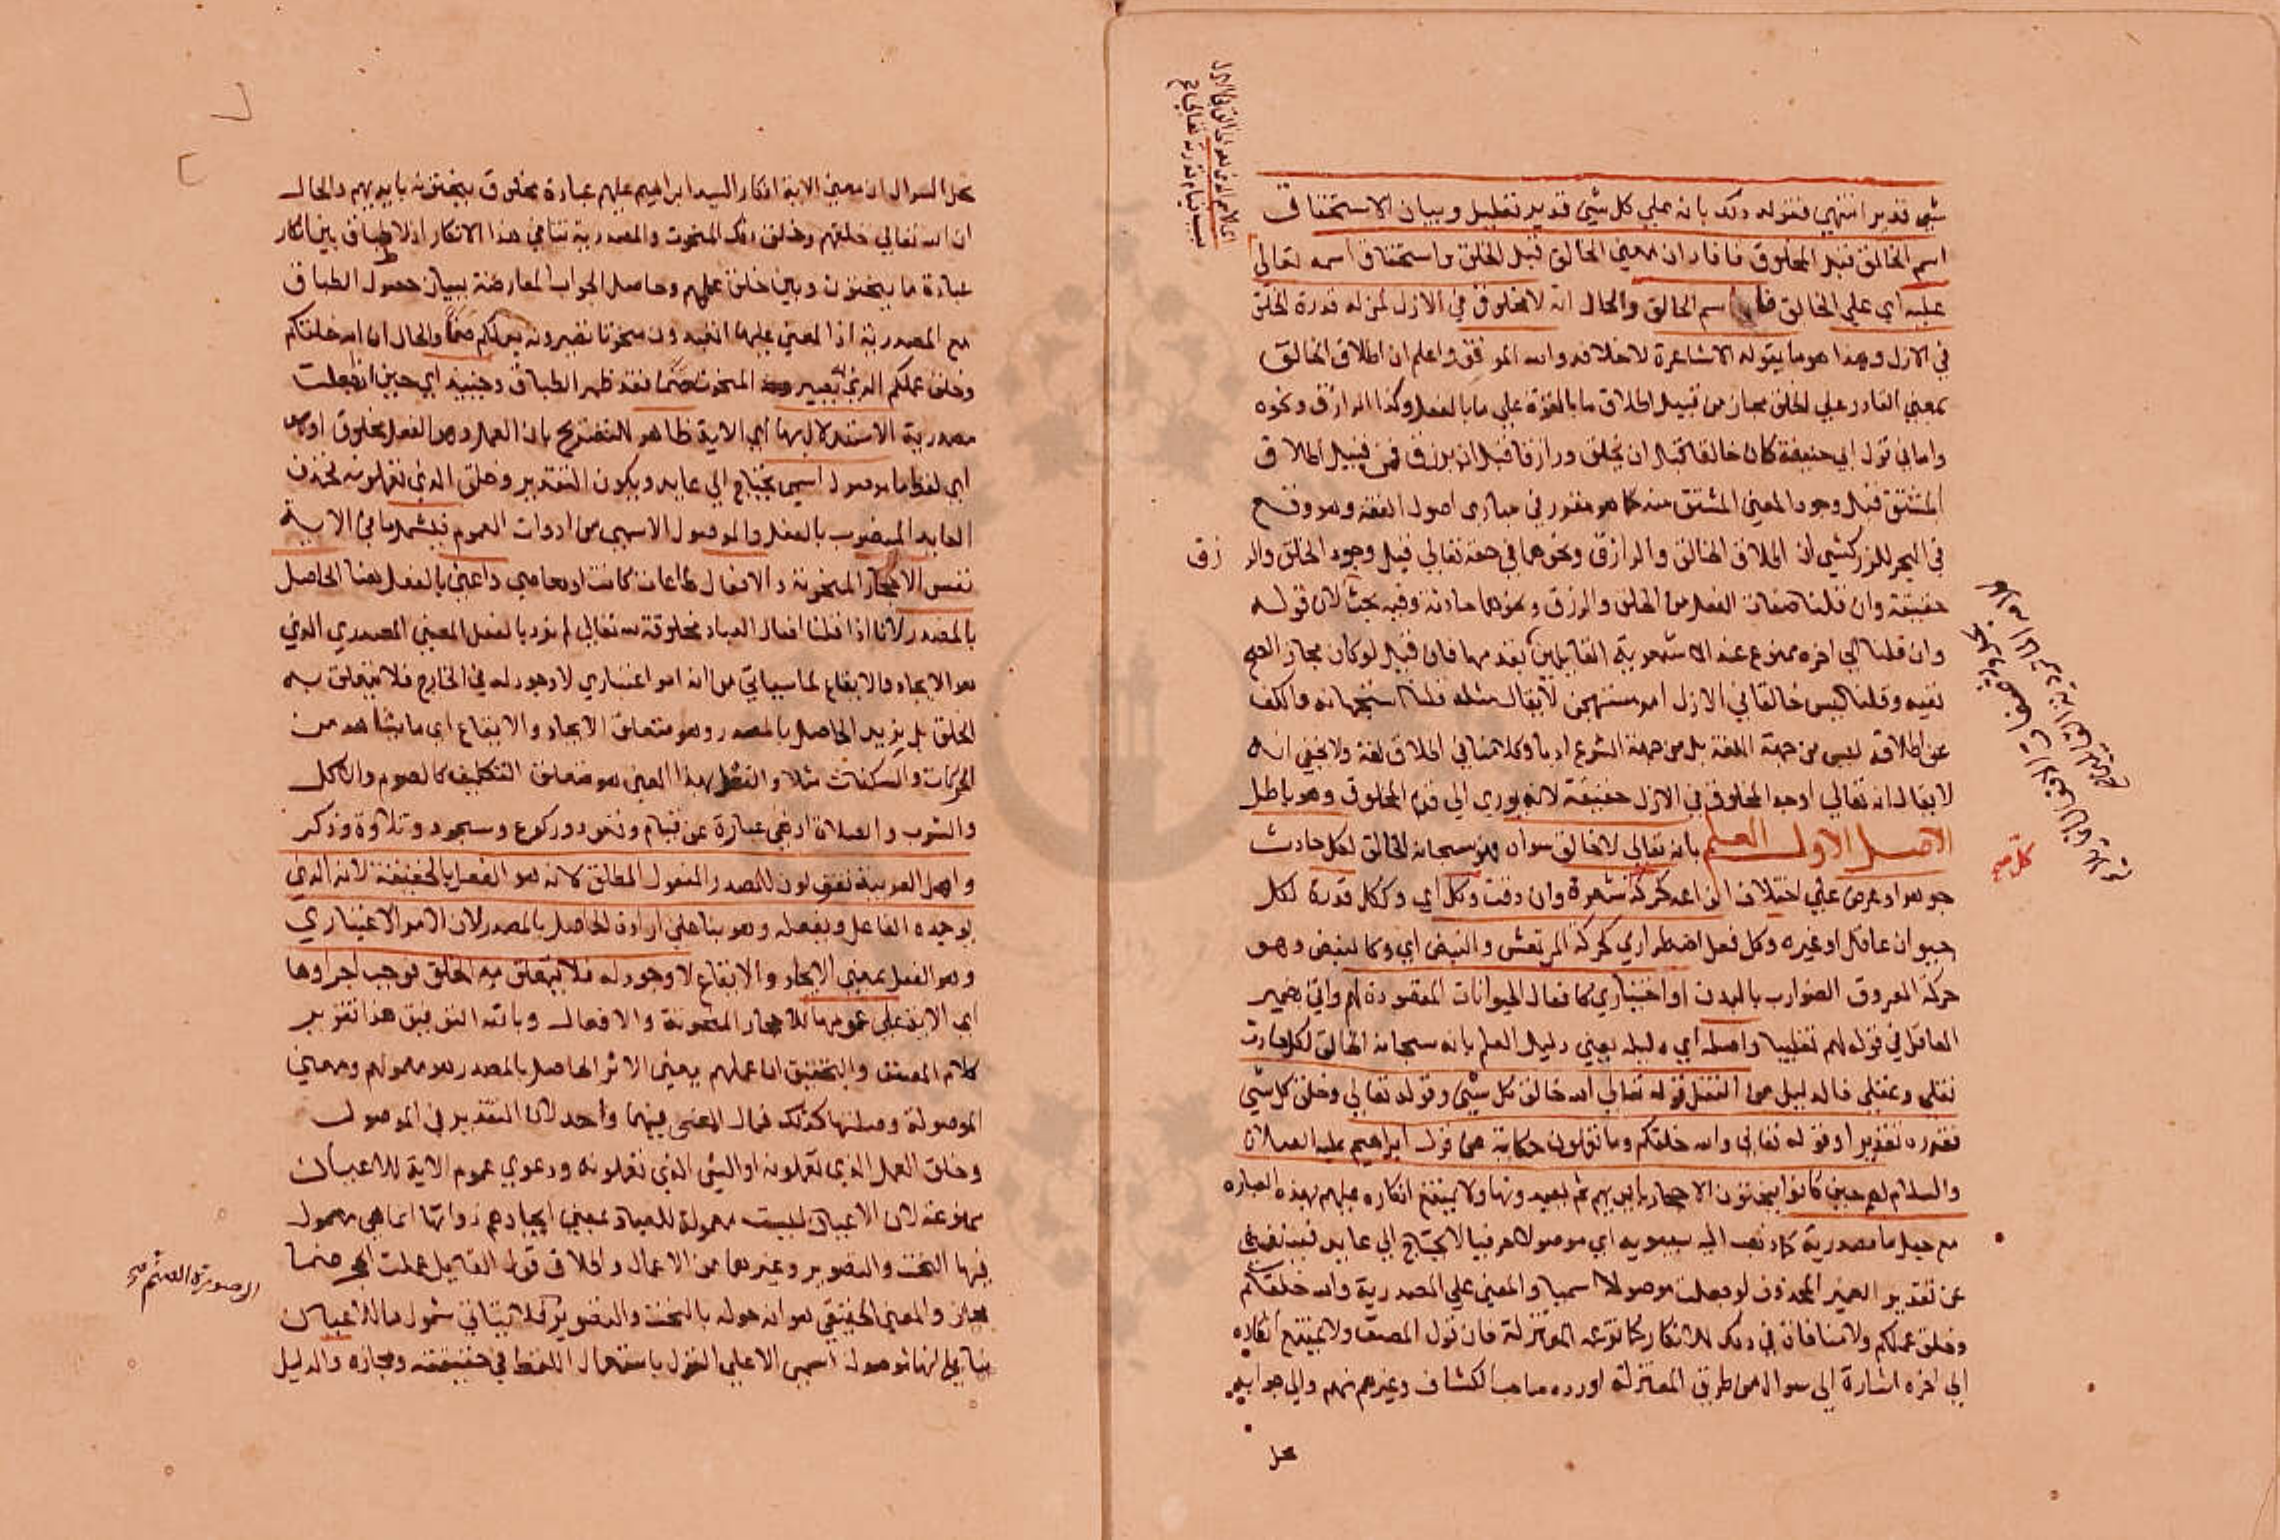 شي قدير انتهي فقوله ذلك بانه علي كل شي قدير تعليل وبيان الاستحقاق
اسم الخالق قبل المخلوق فافاد ان معني الخالق قبل الخلق واستحقاق اسمه تعالي
عليه اي علي الخالق اسم الخالق والحال انه لا مخلوق في الازل لمن له قدرة الخلق
في الازل وهذا هو ما يقوله الاشاعرة لا خلافه والله الموفق واعلم ان اطلاق الخالق
بمعني القادر علي الخلق مجاز من قبيل اطلاق ما بالقوة علي ما بالفعل وكذا الرازق ونحوه
واما في قول ابي حنيفة كان خالقا قبل ان يخلق ورازقا قبل ان يرزق فمن قبيل اطلاق
المشتق قبل وجود المعني المشتق منه كما هو مقرر في مبادي اصول الفقه ووقع
في البحر للزركشي ان اطلاق الخالق والرازق ونحوهما في حقه تعالي قبل وجود الخلق والرزق
حقيقة وان قلنا صفات الفعل من الخلق والرزق ونحوهما حادثة وفيه بحث لان قوله
وان قلنا الي اخره ممنوع عند الاشعرية القايلين بقدمها فان قيل لو كان مجاز الصح
نفيه وقلنا ليس خالقا في الازل امر مستهجن لا يقال مثله قلنا استهجانه والكف
عن اطلاقه ليس من جهة اللغة بل من جهة الشرع ادبا وكلامنا في اطلاق لغة ولا يخفي انه
لا يقال انه تعالي اوجد المخلوق في الازل حقيقة لانه يودي الي قدم المخلوق وهو باطل
الاصل الاول العلم بانه تعالي لا خالق سواه وهو سبحانه الخالق لكل حادث
جوهر او عرض علي اختلاف انواعه كحركة شعرة وان دقت وكل اي وكل قدرة لكل
حيوان عاقل او غيره وكل فعل اضطراري كحركة المرتعش والنبض اي وكالنبض وهو
حركة العروق الضوارب بالبدن او اختياري كافعال الحيوانات المقصودة لهم واتي بضمير
العاقل في قوله لهم تغليبا واصله اي دليله يعني دليل العلم بانه سبحانه الخالق لكل حادث
نقلي وعقلي فالدليل من النقل قوله تعالي الله خالق كل شي وقوله تعالي وخلق كل شي
فقدره تقديرا وقوله تعالي والله خلقكم وما تعملون حكاية عن قول ابراهيم عليه الصلاة
والسلام لهم حين كانوا ينحتون الاحجار بايديهم ثم يعبدونها ولا يمتنع انكاره عليهم بهذه العباره
مع جعل ما مصدرية كما ذهب اليه سيبويه اي موصولا حرفيا لا يحتاج الي عايد فيستغني
عن تقدير الضمير المحذوف لو جعلت موصولا اسميا والمعني علي المصدرية والله خلقكم
وخلق عملكم ولا منافاة في ذلك للانكار كما توهمه المعتزلة فان قول المصنف ولا يمتنع انكاره
الي اخره اشارة الي سوال من طرق المعتزلة اورده صاحب الكشاف وغيرهم منهم والي جوابه
محل
محل السوال ان معني الاية انكار السيد ابراهيم عليهم عبادة مخلوق ينحتونه بايديهم والحال
ان الله تعالي خلقهم وخلق ذلك المنحوت والمصدرية تنافي هذا الانكار اذ لا طباق بين انكار
عبادة ما ينحتون وبين خلق عملهم وحاصل الجواب المعارضة ببيان حصول الطباق
مع المصدرية اذ المعني عليها اتعبدون منحوتا تصيرونه بعملكم صنما والحال ان الله خلقكم
وخلق عملكم الذي يصير المنحوت صنما فقد ظهر الطباق وحينيذ اي حين اذ جعلت
مصدرية الاستدلال بها اي الاية ظاهر للتصريح بان العمل وهو الفعل مخلوق او هي
اي لفظ ما موصول اسمي يحتاج الي عايد ويكون التقدير وخلق الذي تعملونه فحذف
العايد المنصوب بالفعل والموصول الاسمي من ادوات العموم فيشمل ما في الاية
نفس الاحجار المنحوتة والافعال طاعات كانت او معاصي واعني بالفعل هنا الحاصل
بالمصدر لانا اذا قلنا افعال العباد مخلوقة لله تعالي لم نرد بالفعل المعني المصدري الذي
هو الايجاد والايقاع لما سياتي من انه امر اعتباري لا وجود له في الخارج فلا يتعلق به
الخلق بل نريد الحاصل بالمصدر وهو متعلق الايجاد والايقاع اي ما يشاهد من
الحركات والسكنات مثلا والفعل بهذا المعني هو متعلق التكليف كالصوم والاكل
والشرب والصلاة اذ هي عبارة عن قيام وقعود وركوع وسجود وتلاوة وذكر
واهل العربية يقولون للمصدر المفعول المطلق لانه هو الفعل بالحقيقة لانه الذي
يوجده الفاعل ويفعله وهو بنا علي ارادة الحاصل بالمصدر لان الامر الاعتباري
وهو الفعل بمعني الايجاد والايقاع لا وجود له فلا يتعلق به الخلق فوجب اجراوها
اي الاية علي عمومها للاحجار المنحوتة والافعال وبالله التوفيق هذا تقرير
كلام المصنف والتحقيق ان عملهم بمعني الاثر الحاصل بالمصدر هو معمولهم ومعني
الموصولة وصلتها كذلك فمال المعني فيهما واحد لان التقدير في الموصول
وخلق العمل الذي تعملونه او الشي الذي تعملونه ودعوي عموم الاية للاعيان
ممنوعة لان الاعيان ليست معمولة للعباد بمعني ايجادهم ذواتها انما هي معمول
فيها النحت والتصوير وغيرهما من الاعمال واطلاق قول القايل عملت الحجر صنما
مجاز والمعني الحقيقي هو انه حوله بالنحت والتصوير فلا يتاتي شمول ما للاعيان
بنا علي انها موصول اسمي الا علي القول باستعمال اللفظ في حقيقته ومجازه والدليل
الي صورة الصنم صح